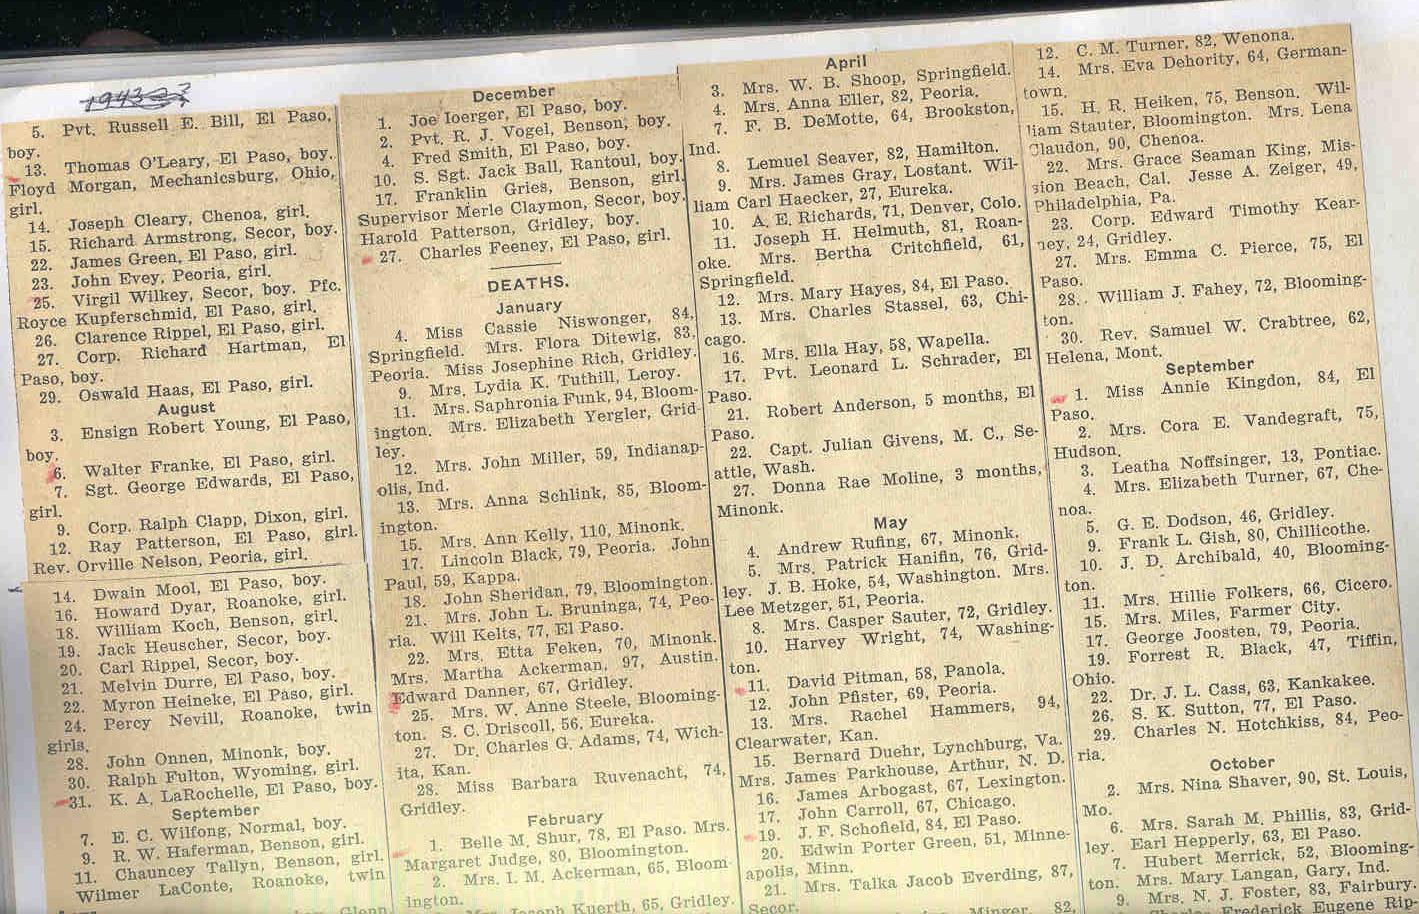 5. Pvt. Russell E. Bill, El Paso,
boy.
13. Thomas O'Leary, El Paso, boy.
Floyd Morgan, Mechanicsburg, Ohio,
girl.
14. Joseph Cleary, Chenoa, girl.
15. Richard Armstrong, Secor, boy.
22. James Green, El Paso, girl.
23. John Evey, Peoria, girl.
25. Virgil Wilkey, Secor, boy. Pfc.
Royce Kupferschmid, El Paso, girl.
26. Clarence Rippel, El Paso, girl.
27. Corp. Richard Hartman, El
Paso, boy.
29. Oswald Haas, El Paso, girl.
August
3. Ensign Robert Young, El Paso,
boy.
6. Walter Franke, El Paso, girl.
7. Sgt. George Edwards, El Paso,
girl.
9. Corp. Ralph Clapp, Dixon, girl.
12. Ray Patterson, El Paso, girl.
Rev. Orville Nelson, Peoria, girl.
14. Dwain Mool, El Paso, boy.
16. Howard Dyar, Roanoke, girl.
18. William Koch, Benson, girl.
19. Jack Heuscher, Secor, boy.
20. Carl Rippel, Secor, boy.
21. Melvin Durre, El Paso, boy.
22. Myron Heineke, El Paso, girl.
24. Percy Nevill, Roanoke, twin
girls.
28. John Onnen, Minonk, boy.
30. Ralph Fulton, Wyoming, girl.
31. K. A. LaRochelle, El Paso, boy.
September
7. E. C. Wilfong, Normal, boy.
9. R. W. Haferman, Benson, girl.
11. Chauncey Tallyn, Benson, girl.
Wilmer LaConte, Roanoke, twin
Glenn
December
1. Joe Ioerger, El Paso, boy.
2. Pvt. R. J. Vogel, Benson, boy.
4. Fred Smith, El Paso, boy.
10. S. Sgt. Jack Ball, Rantoul, boy.
17. Franklin Gries, Benson, girl.
Supervisor Merle Claymon, Secor, boy.
Harold Patterson, Gridley, boy.
27. Charles Feeney, El Paso, girl.
DEATHS.
January
4. Miss Cassie Niswonger, 84,
Springfield. Mrs. Flora Ditewig, 83,
Peoria. Miss Josephine Rich, Gridley.
9. Mrs. Lydia K. Tuthill, Leroy.
11. Mrs. Saphronia Funk, 94, Bloom-
ington. Mrs. Elizabeth Yergler, Grid-
ley.
12. Mrs. John Miller, 59, Indianap-
olis, Ind.
13. Mrs. Anna Schlink, 85, Bloom-
ington.
15. Mrs. Ann Kelly, 110, Minonk.
17. Lincoln Black, 79, Peoria. John
Paul, 59, Kappa.
18. John Sheridan, 79, Bloomington.
21. Mrs. John L. Bruninga, 74, Peo-
ria. Will Kelts, 77, El Paso.
22. Mrs. Etta Feken, 70, Minonk.
Mrs. Martha Ackerman, 97, Austin.
Edward Danner, 67, Gridley.
25. Mrs. W. Anne Steele, Blooming-
ton. S. C. Driscoll, 56, Eureka.
27. Dr. Charles G. Adams, 74, Wich-
ita, Kan.
28. Miss Barbara Ruvenacht, 74,
Gridley.
February
1. Belle M. Shur, 78, El Paso. Mrs.
Margaret Judge, 80, Bloomington.
2. Mrs. I. M. Ackerman, 65, Bloom-
ington.
Joseph Kuerth, 65, Gridley.
April
3. Mrs. W. B. Shoop, Springfield.
4. Mrs. Anna Eller, 82, Peoria.
7. F. B. DeMotte, 64, Brookston,
Ind.
8. Lemuel Seaver, 82, Hamilton.
9. Mrs. James Gray, Lostant. Wil-
liam Carl Haecker, 27, Eureka.
10. A. E. Richards, 71, Denver, Colo.
11. Joseph H. Helmuth, 81, Roan-
oke. Mrs. Bertha Critchfield, 61,
Springfield.
12. Mrs. Mary Hayes, 84, El Paso.
13. Mrs. Charles Stassel, 63, Chi-
cago.
16. Mrs. Ella Hay, 58, Wapella.
17. Pvt. Leonard L. Schrader, El
Paso.
21. Robert Anderson, 5 months, El
Paso.
22. Capt. Julian Givens, M. C., Se-
attle, Wash.
27. Donna Rae Moline, 3 months,
Minonk.
May
4. Andrew Rufing, 67, Minonk.
5. Mrs. Patrick Hanifin, 76, Grid-
ley. J. B. Hoke, 54, Washington. Mrs.
Lee Metzger, 51, Peoria.
8. Mrs. Casper Sauter, 72, Gridley.
10. Harvey Wright, 74, Washing-
ton.
11. David Pitman, 58, Panola.
12. John Pfister, 69, Peoria.
13. Mrs. Rachel Hammers, 94,
Clearwater, Kan.
15. Bernard Duehr, Lynchburg, Va.
Mrs. James Parkhouse, Arthur, N. D.
16. James Arbogast, 67, Lexington.
17. John Carroll, 67, Chicago.
19. J. F. Schofield, 84, El Paso.
20. Edwin Porter Green, 51, Minne-
apolis, Minn.
21. Mrs. Talka Jacob Everding, 87,
Secor.
Minger, 82,
12. C. M. Turner, 82, Wenona.
14. Mrs. Eva Dehority, 64, German-
town.
15. H. R. Heiken, 75, Benson. Wil-
liam Stauter, Bloomington. Mrs. Lena
Claudon, 90, Chenoa.
22. Mrs. Grace Seaman King, Mis-
sion Beach, Cal. Jesse A. Zeiger, 49,
Philadelphia, Pa.
23. Corp. Edward Timothy Kear-
ney, 24, Gridley.
27. Mrs. Emma C. Pierce, 75, El
Paso.
28. William J. Fahey, 72, Blooming-
ton.
30. Rev. Samuel W. Crabtree, 62,
Helena, Mont.
September
1. Miss Annie Kingdon, 84, El
Paso.
2. Mrs. Cora E. Vandegraft, 75,
Hudson.
3. Leatha Noffsinger, 13, Pontiac.
4. Mrs. Elizabeth Turner, 67, Che-
noa.
5. G. E. Dodson, 46, Gridley.
9. Frank L. Gish, 80, Chillicothe.
10. J. D. Archibald, 40, Blooming-
ton.
11. Mrs. Hillie Folkers, 66, Cicero.
15. Mrs. Miles, Farmer City.
17. George Joosten, 79, Peoria.
19. Forrest R. Black, 47, Tiffin,
Ohio.
22. Dr. J. L. Cass, 63, Kankakee.
26. S. K. Sutton, 77, El Paso.
29. Charles N. Hotchkiss, 84, Peo-
ria.
October
2. Mrs. Nina Shaver, 90, St. Louis,
Mo.
6. Mrs. Sarah M. Phillis, 83, Grid-
ley. Earl Hepperly, 63, El Paso.
7. Hubert Merrick, 52, Blooming-
ton. Mrs. Mary Langan, Gary, Ind.
9. Mrs. N. J. Foster, 83, Fairbury.
Frederick Eugene Rip-